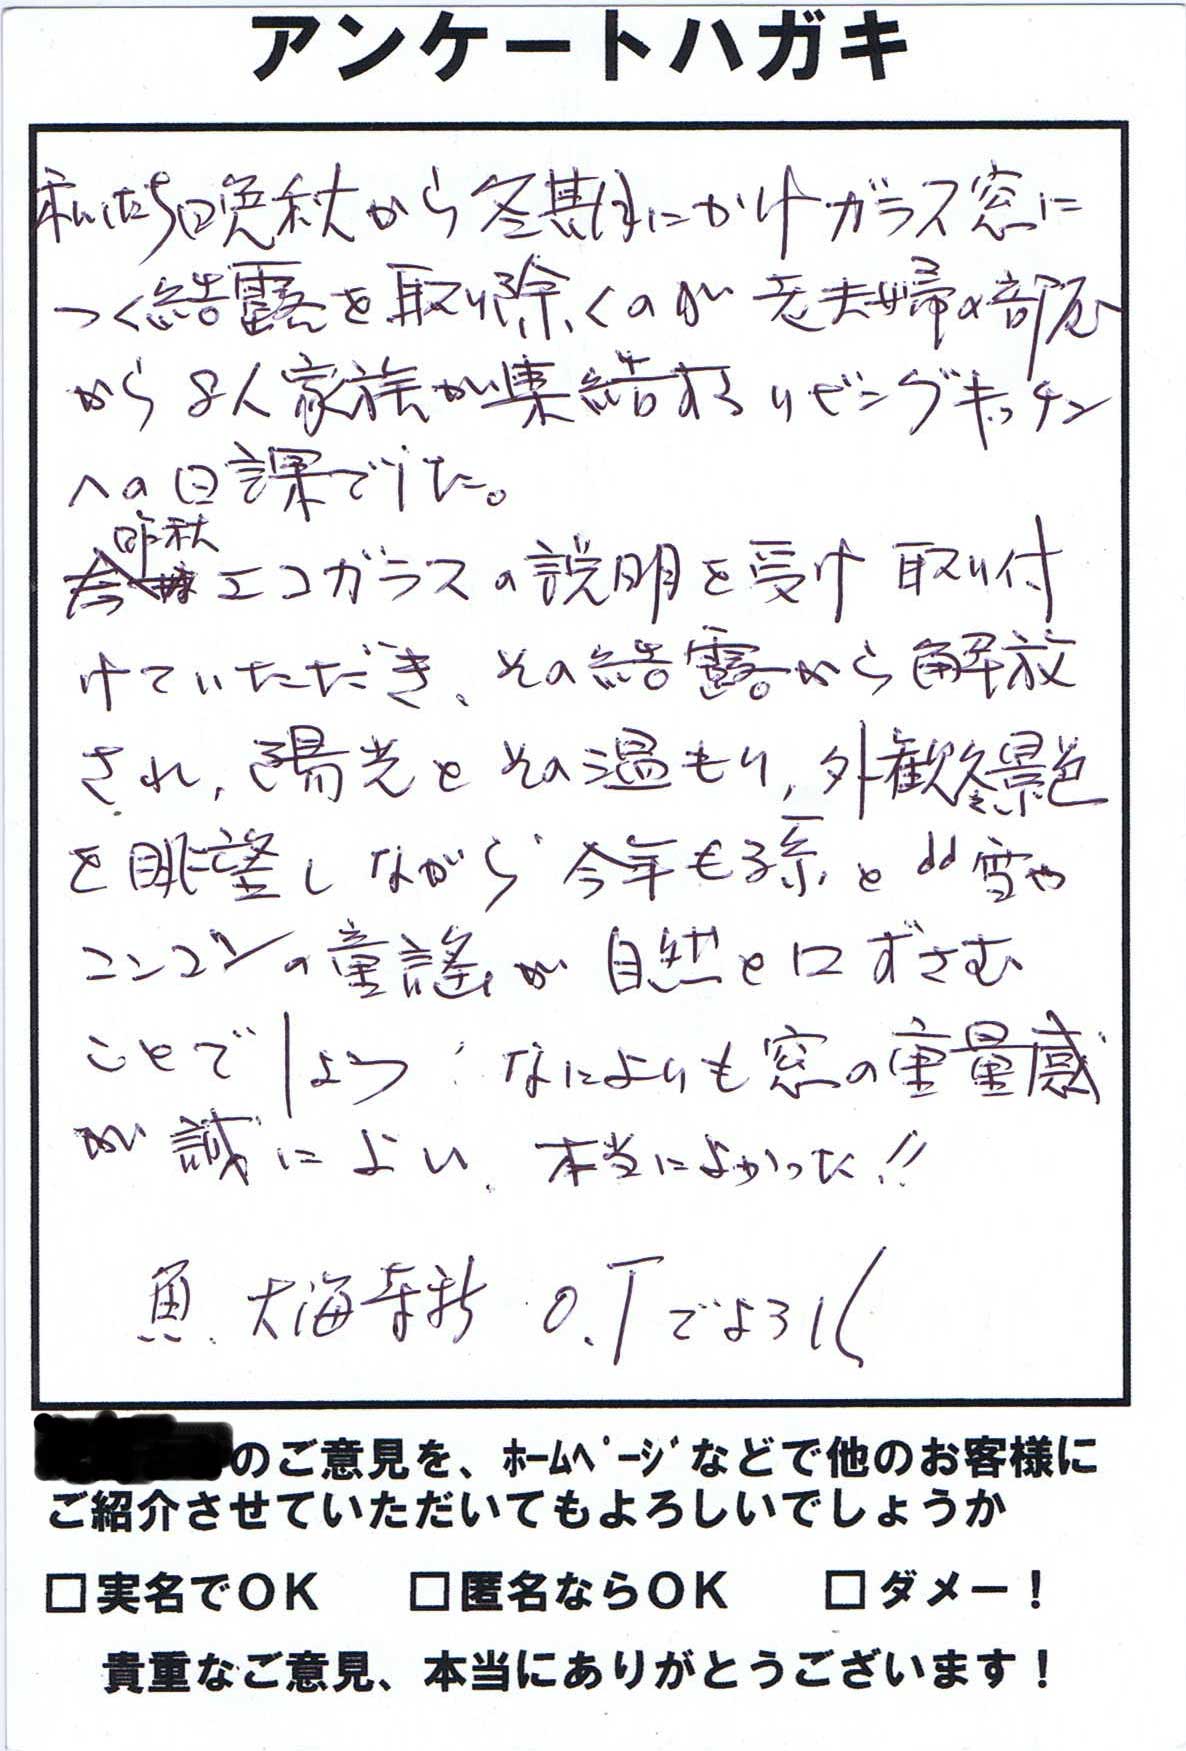 アンケートハガキ
私たちは晩秋から冬期間にかけガラス窓に
つく結露を取り除くのが老夫婦の部屋
から8人家族が集結するリビングキッチン
への日課でした。
昨秋
エコガラスの説明を受け取り付
けていただき、その結露から解放
され、陽光とその温もり、外観冬景色
を眺望しながら今年も孫と〃雪や
コンコンの童謡が自然と口ずさむ
ことでしょう なによりも窓の重量感
が誠によい、本当によかった!!
魚、大海寺新 O.Tでよろしく
のご意見を、ﾎｰﾑﾍﾟｰｼﾞなどで他のお客様に
ご紹介させていただいてもよろしいでしょうか
□実名でOK □匿名ならOK □ダメー！
貴重なご意見、本当にありがとうございます！